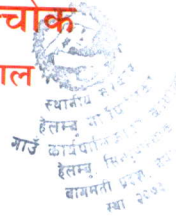 चोक
ाल
स्थानीय सरकार
हेलम्बु
गाउँ कार्यपालिकाको
हेलम्बु, सिन्धुपाल्चोक
बागमती प्रदेश,
स्था २०७३